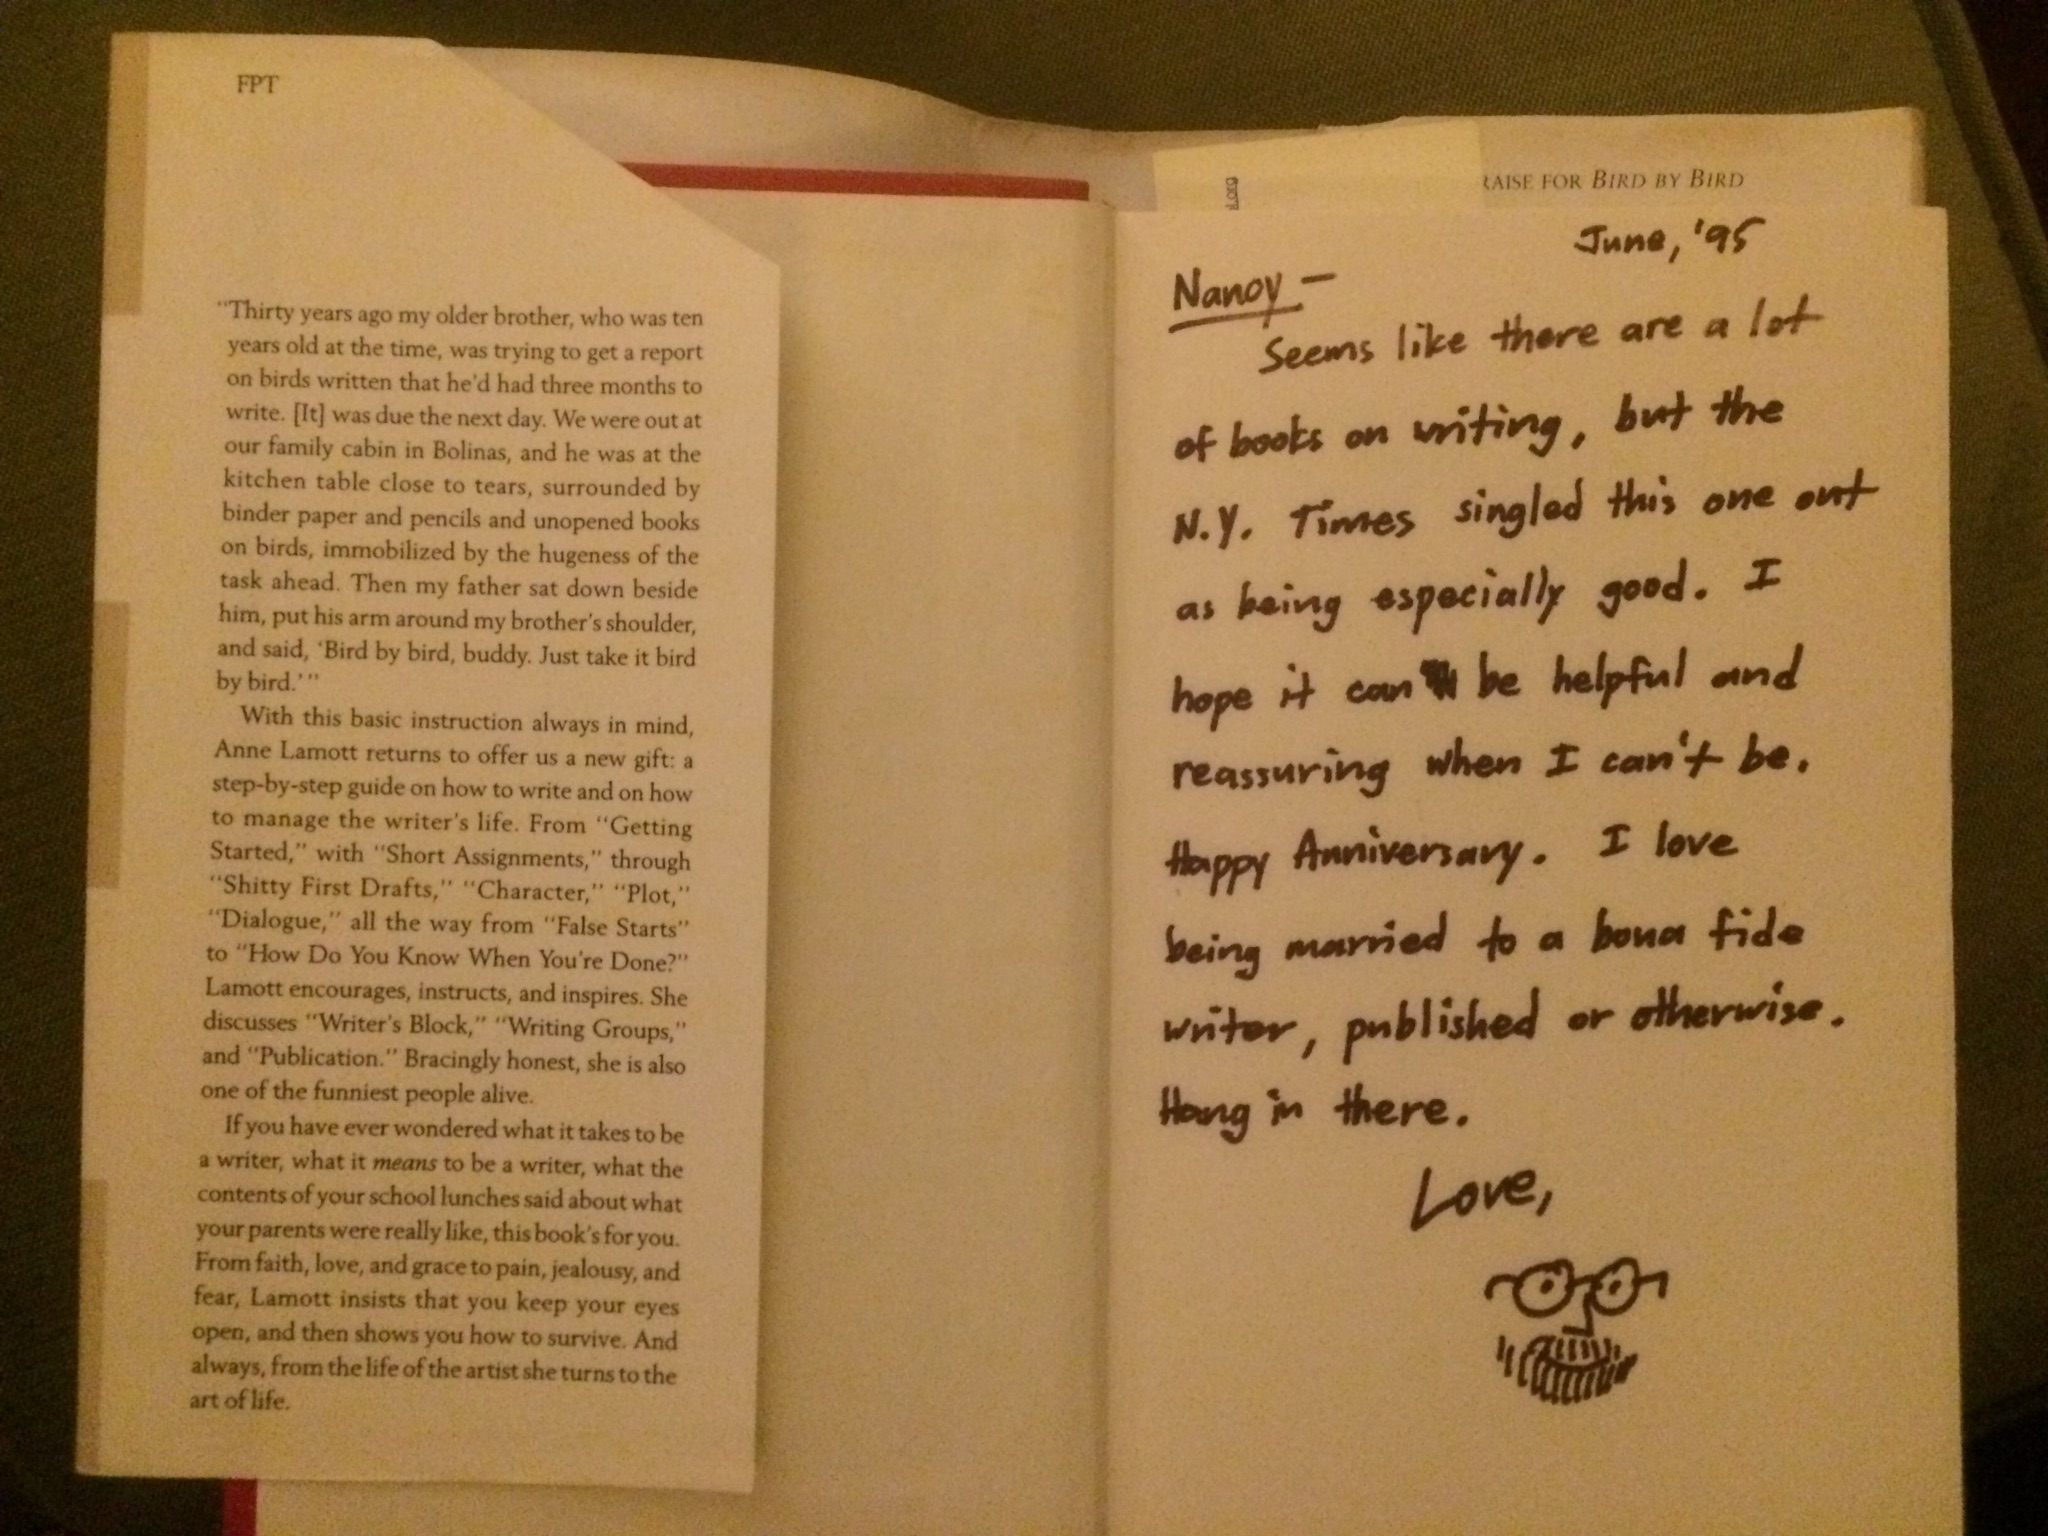 FPT
“Thirty years ago my older brother, who was ten
years old at the time, was trying to get a report
on birds written that he'd had three months to
write. [It] was due the next day. We were out at
our family cabin in Bolinas, and he was at the
kitchen table close to tears, surrounded by
binder paper and pencils and unopened books
on birds, immobilized by the hugeness of the
task ahead. Then my father sat down beside
him, put his arm around my brother's shoulder,
and said, ‘Bird by bird, buddy. Just take it bird
by bird.’”
With this basic instruction always in mind,
Anne Lamott returns to offer us a new gift: a
step-by-step guide on how to write and on how
to manage the writer's life. From “Getting
Started,” with “Short Assignments,” through
“Shitty First Drafts,” “Character,” “Plot,”
“Dialogue,” all the way from “False Starts”
to “How Do You Know When You're Done?”
Lamott encourages, instructs, and inspires. She
discusses “Writer's Block,” “Writing Groups,”
and “Publication.” Bracingly honest, she is also
one of the funniest people alive.
If you have ever wondered what it takes to be
a writer, what it means to be a writer, what the
contents of your school lunches said about what
your parents were really like, this book's for you.
From faith, love, and grace to pain, jealousy, and
fear, Lamott insists that you keep your eyes
open, and then shows you how to survive. And
always, from the life of the artist she turns to the
art of life.
RAISE FOR BIRD BY BIRD
June, '95
Nancy —
Seems like there are a lot
of books on writing, but the
N.Y. Times singled this one out
as being especially good. I
hope it can be helpful and
reassuring when I can't be.
Happy Anniversary. I love
being married to a bona fide
writer, published or otherwise.
Hang in there.
Love,